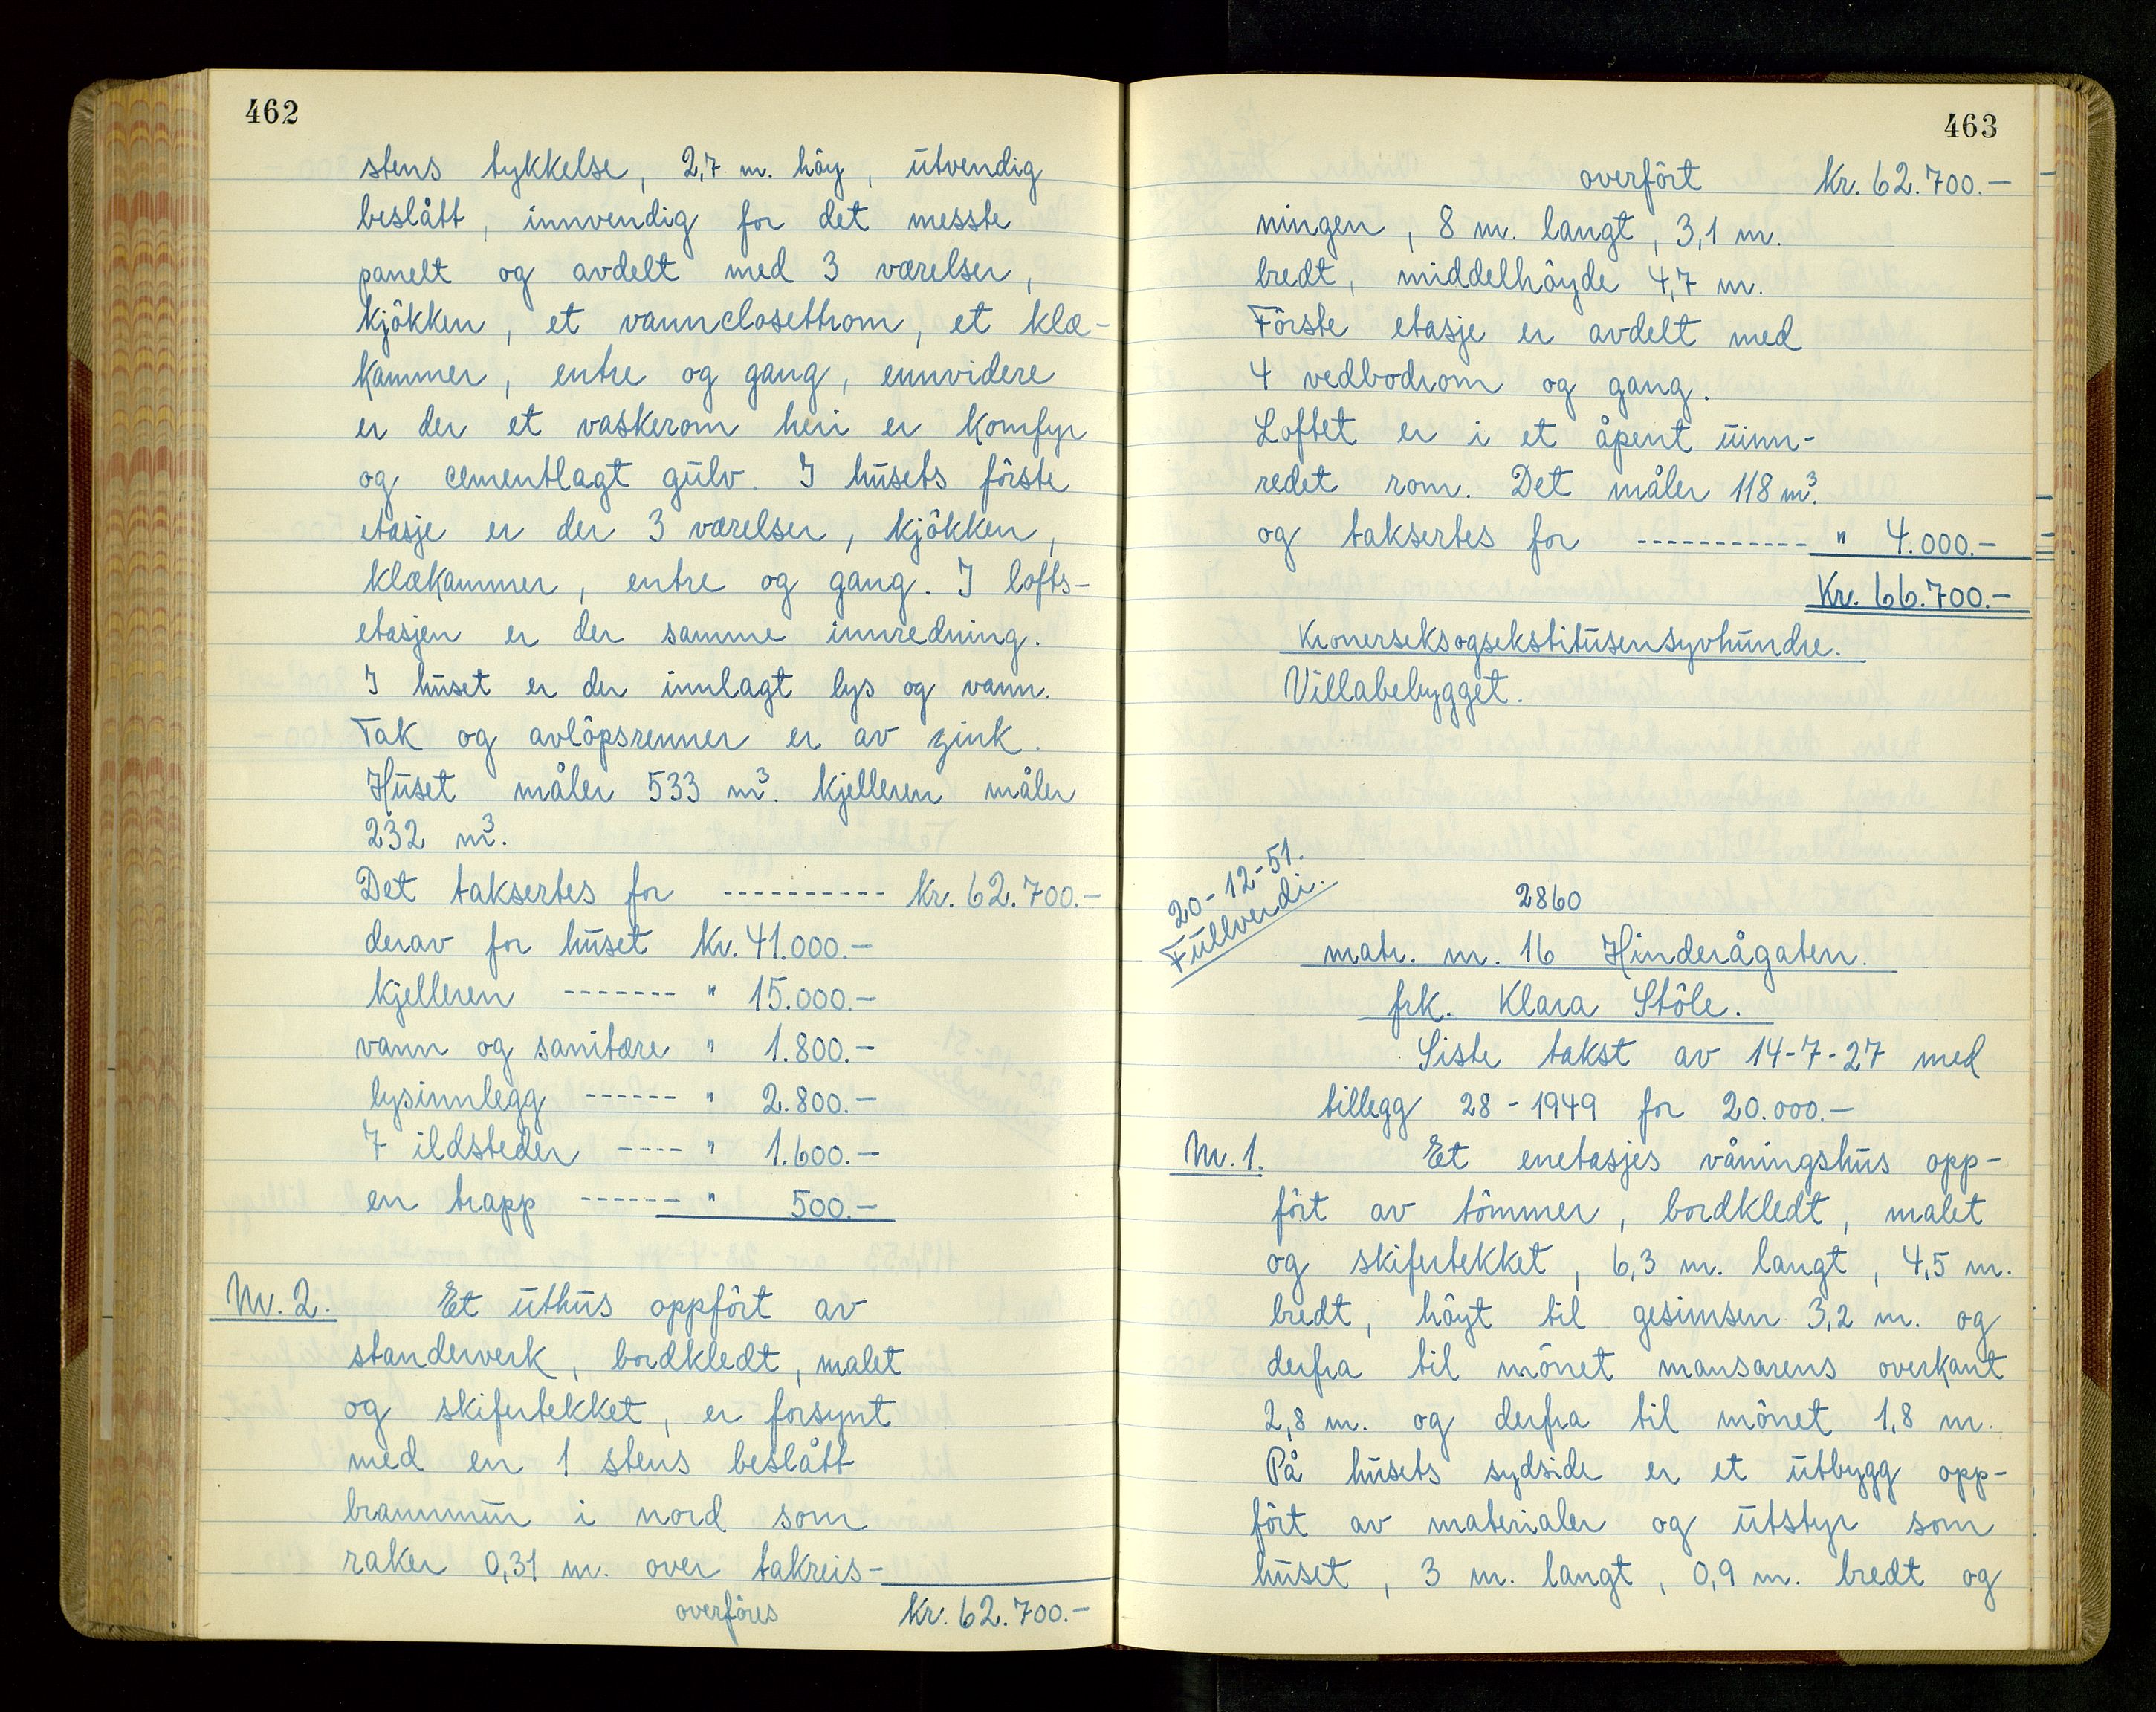 462
stens tykkelse, 2,7 m. höy, utvendig
beslått, innvendig for det messte
panelt og avdelt med 3 værelser,
kjökken, et vannclosettrom, et klæ-
kammer, entre og gang, ennvidere
er der et vaskerom heri er komfyr
og cementlagt gulv. I husets förste
etasje er der 3 værelser, kjökken,
klækammer, entre og gang. I lofts-
etasjen er der samme innredning.
I huset er der innlagt lys og vann.
Tak og avlöpsrenner er av zink.
Huset måler 533 m³. kjelleren måler
232 m³.
Det taksertes for ---------- Kr. 62.700.-
derav for huset Kr. 41.000.-
kjelleren ------- " 15.000.-
vann og sanitære " 1.800.-
lysinnlegg ------ " 2.800.-
7 ildsteder ---- " 1.600.-
en trapp ------ " 500.-
Nr. 2. Et uthus oppfört av
standerverk, bordkledt, malet
og skifertekket, er forsynt
med en 1 stens beslått
brannmur i nord som
raker 0,31 m. over takreis-
overföres Kr. 62.700.-
463
overfört Kr. 62.700.-
ningen, 8 m. langt, 3,1 m.
bredt, middelhöyde 4,7 m.
Förste etasje er avdelt med
4 vedbodrom og gang.
Loftet er i et åpent uinn-
redet rom. Det måler 118 m³.
og taksertes for ----------- " 4.000.-
Kr. 66.700.-
Kronerseksogsekstitusensyvhundre.
Villabebygget.
20-12-51.
Fullverdi.
2860
matr. nr. 16 Hinderågaten.
frk. Klara Stöle.
Siste takst av 14-7-27 med
tillegg 28-1949 for 20.000.-
Nr. 1. Et enetasjes våningshus opp-
fört av tömmer, bordkledt, malet
og skifertekket, 6,3 m. langt, 4,5 m.
bredt, höyt til gesimsen 3,2 m. og
derfra til mönet mansarens overkant
2,8 m. og derfra til mönet 1,8 m.
På husets sydside er et utbygg opp-
fört av materialer og utstyr som
huset, 3 m. langt, 0,9 m. bredt og